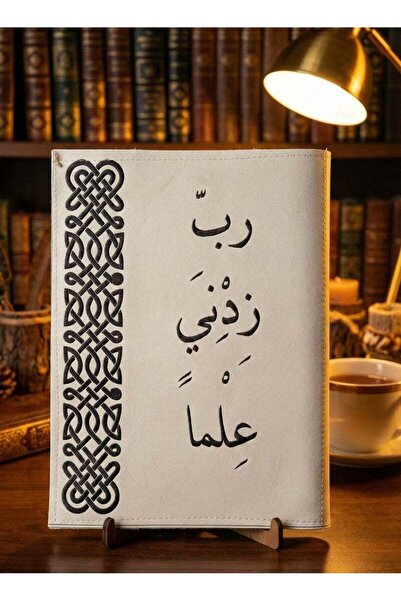 ربّ
زِدْنَي
عِلْماً